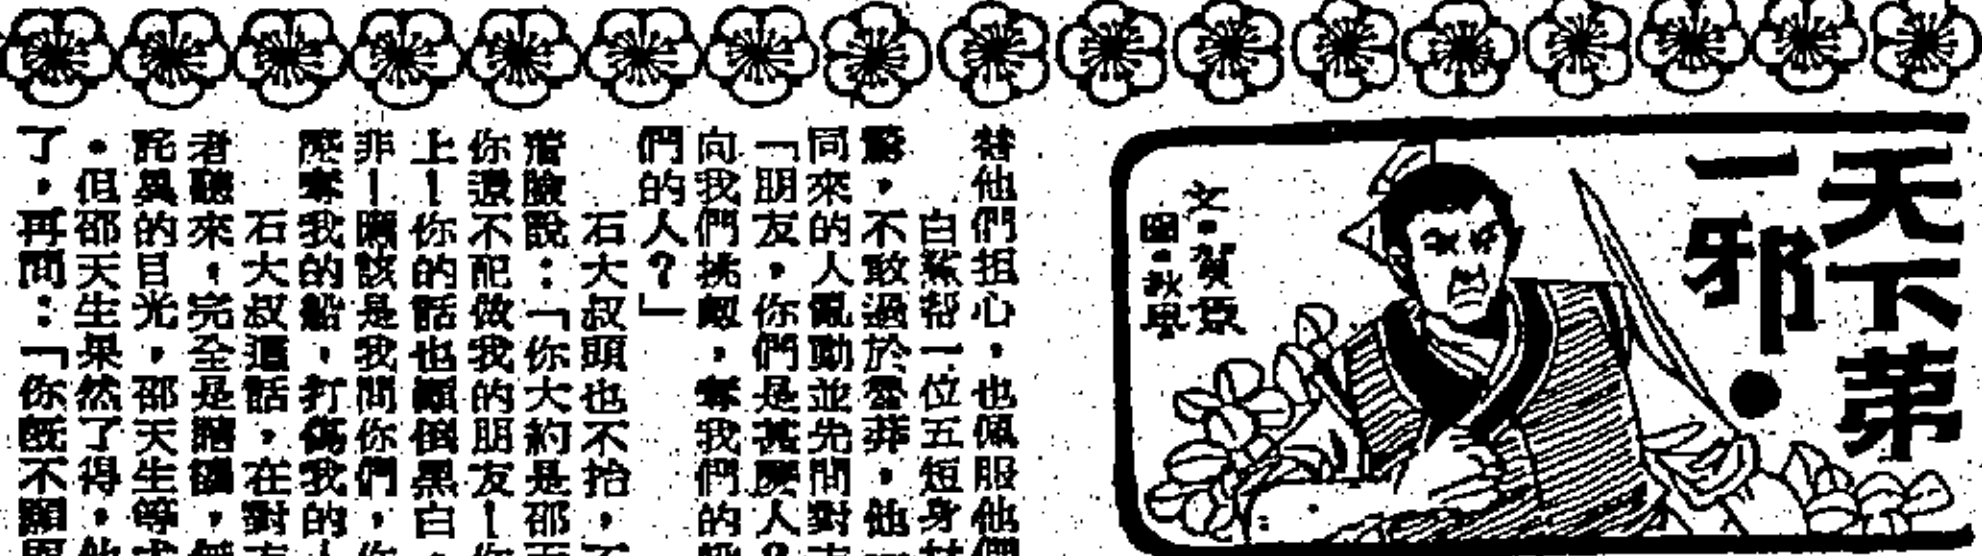 天下第
一邪●
文·賀章
圖·秋風
替他們担心，也佩服他們
白鯊帮一位五短身材
驚，不敢過於魯莽，他一
同來的人亂動並先問對方
「朋友，你們是甚麽人？
向我們挑釁，奪我們的船
們的人？」
石大叔頭也不抬，不
着臉說：「你大約是邵天
你還不配做我的朋友！你
上！你的話也顚倒黑白，
非！嘿該是我問你們，你
麽奪我的船，打傷我的人
石大叔這話，在對方
者聽來，完全是瞎鬧，無
詫異的目光，邵天生等
．但邵天生果然了得，他
了，再問：「你旣不願